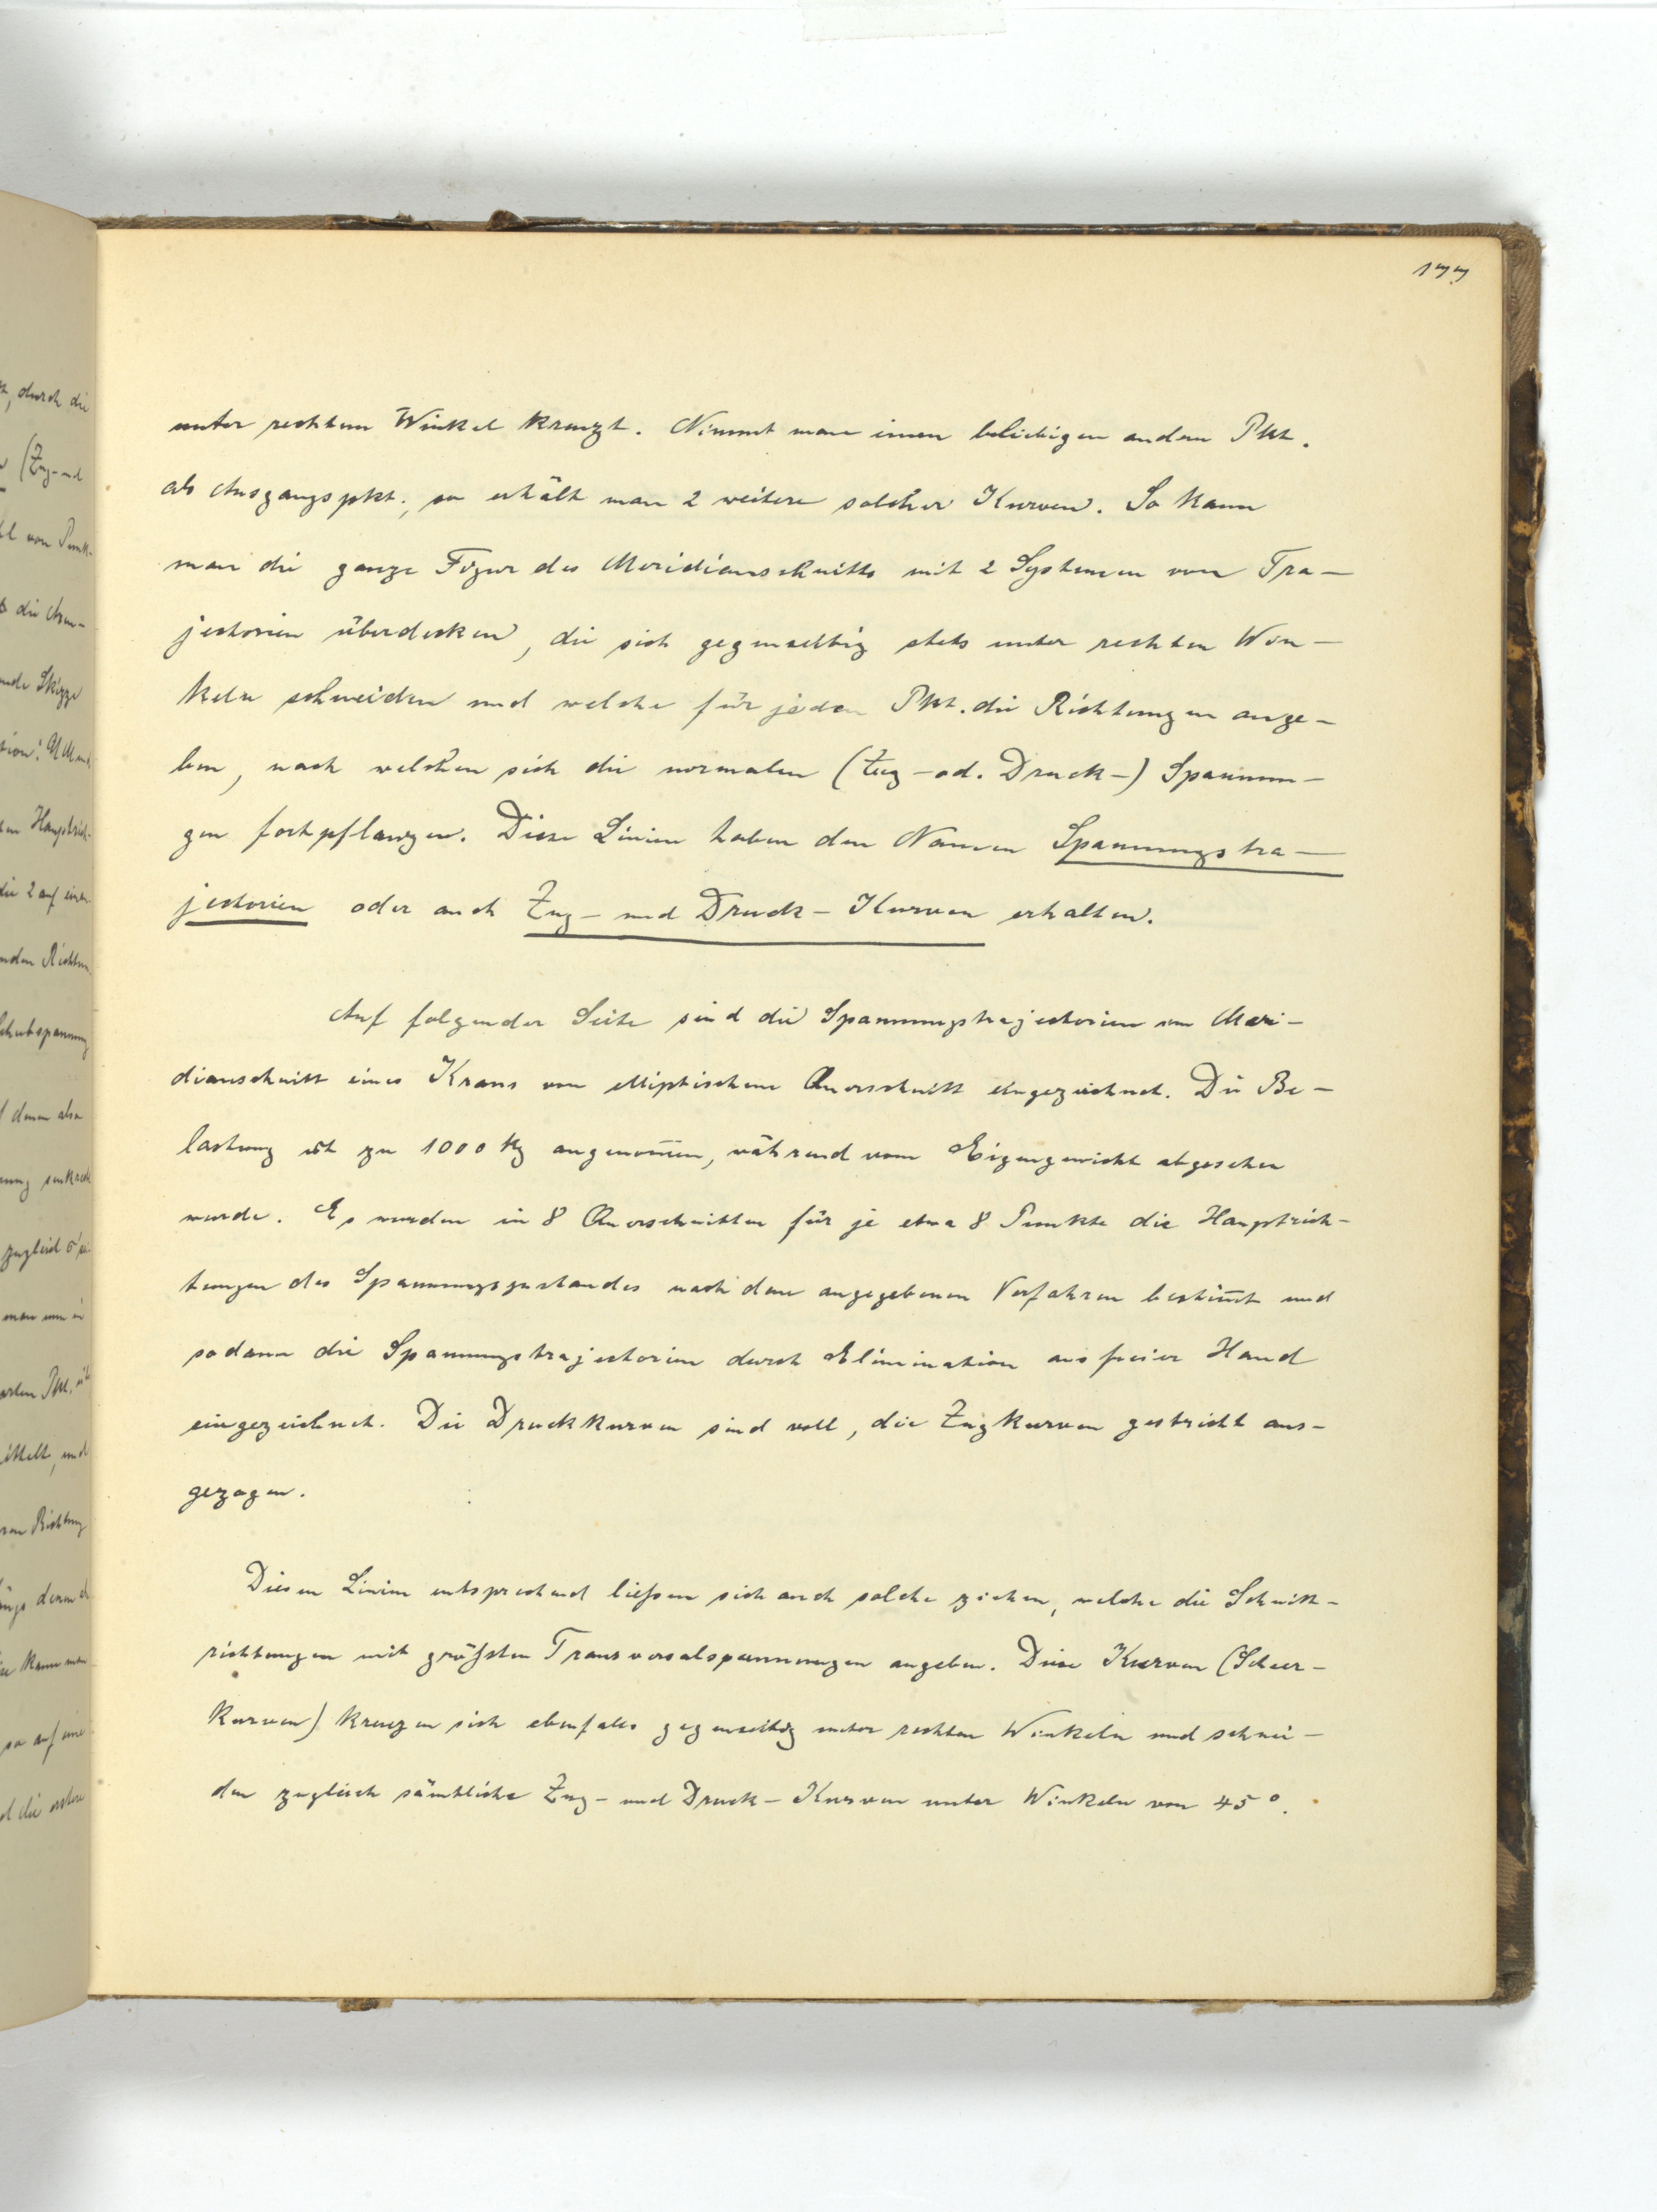 177
unter rechtem Winkel kreuzt. Nimmt man einen beliebigen andern Pkt.
als Ausgangspkt., so erhält man 2 weitere solcher Kurven. So kann
man die ganze Figur des Meridianschnitts mit 2 Systemen von Tra-
jectorien überdecken, die sich gegenseitig stets unter rechten Win-
keln schneiden und welche für jeden Pkt. die Richtungen ange-
ben, nach welchen sich die normalen (Zug- od. Druck-) Spannun-
gen fortpflanzen. Diese Linien haben den Namen Spannungstra-
jectorien oder auch Zug- und Druck-Kurven erhalten.
Auf folgender Seite sind die Spannungstrajectorien im Meri-
dianschnitt eines Krans von elliptischem Querschnitt eingezeichnet. Die Be-
lastung ist zu 1000 kg angenom̅en, während vom Eigengewicht abgesehen
wurde. Es wurden in 8 Querschnitten für je etwa 8 Punkte die Hauptrich-
tungen des Spannungszustandes nach dem angegebenen Verfahren bestim̅t und
sodann die Spannungstrajectorien durch Elimination aus freier Hand
eingezeichnet. Die Druckkurven sind voll, die Zugkurven gestricht aus-
gezogen.
Diesen Linien entsprechend ließen sich auch solche ziehen, welche die Schnitt-
richtungen mit größten Transversalspannungen angeben. Diese Kurven (Scheer-
kurven) kreuzen sich ebenfalls gegenseitig unter rechten Winkeln und schnei-
den zugleich sämtliche Zug- und Druck-Kurven unter Winkeln von 45°.